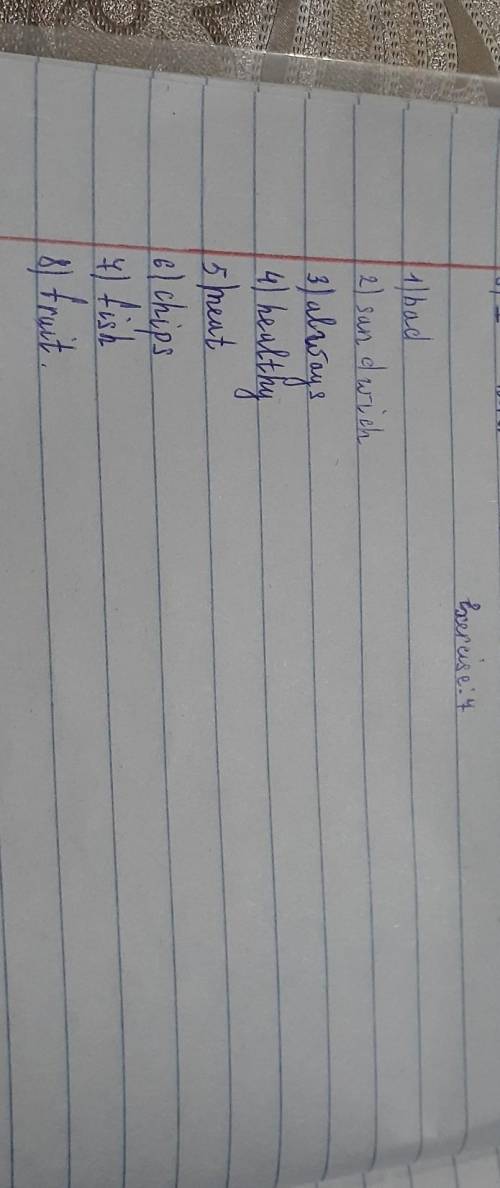 Exercise: 7
1) bad
2) sandwich
3) always
4) healthy
5) meat
6) chips
7) fish
8) fruit.